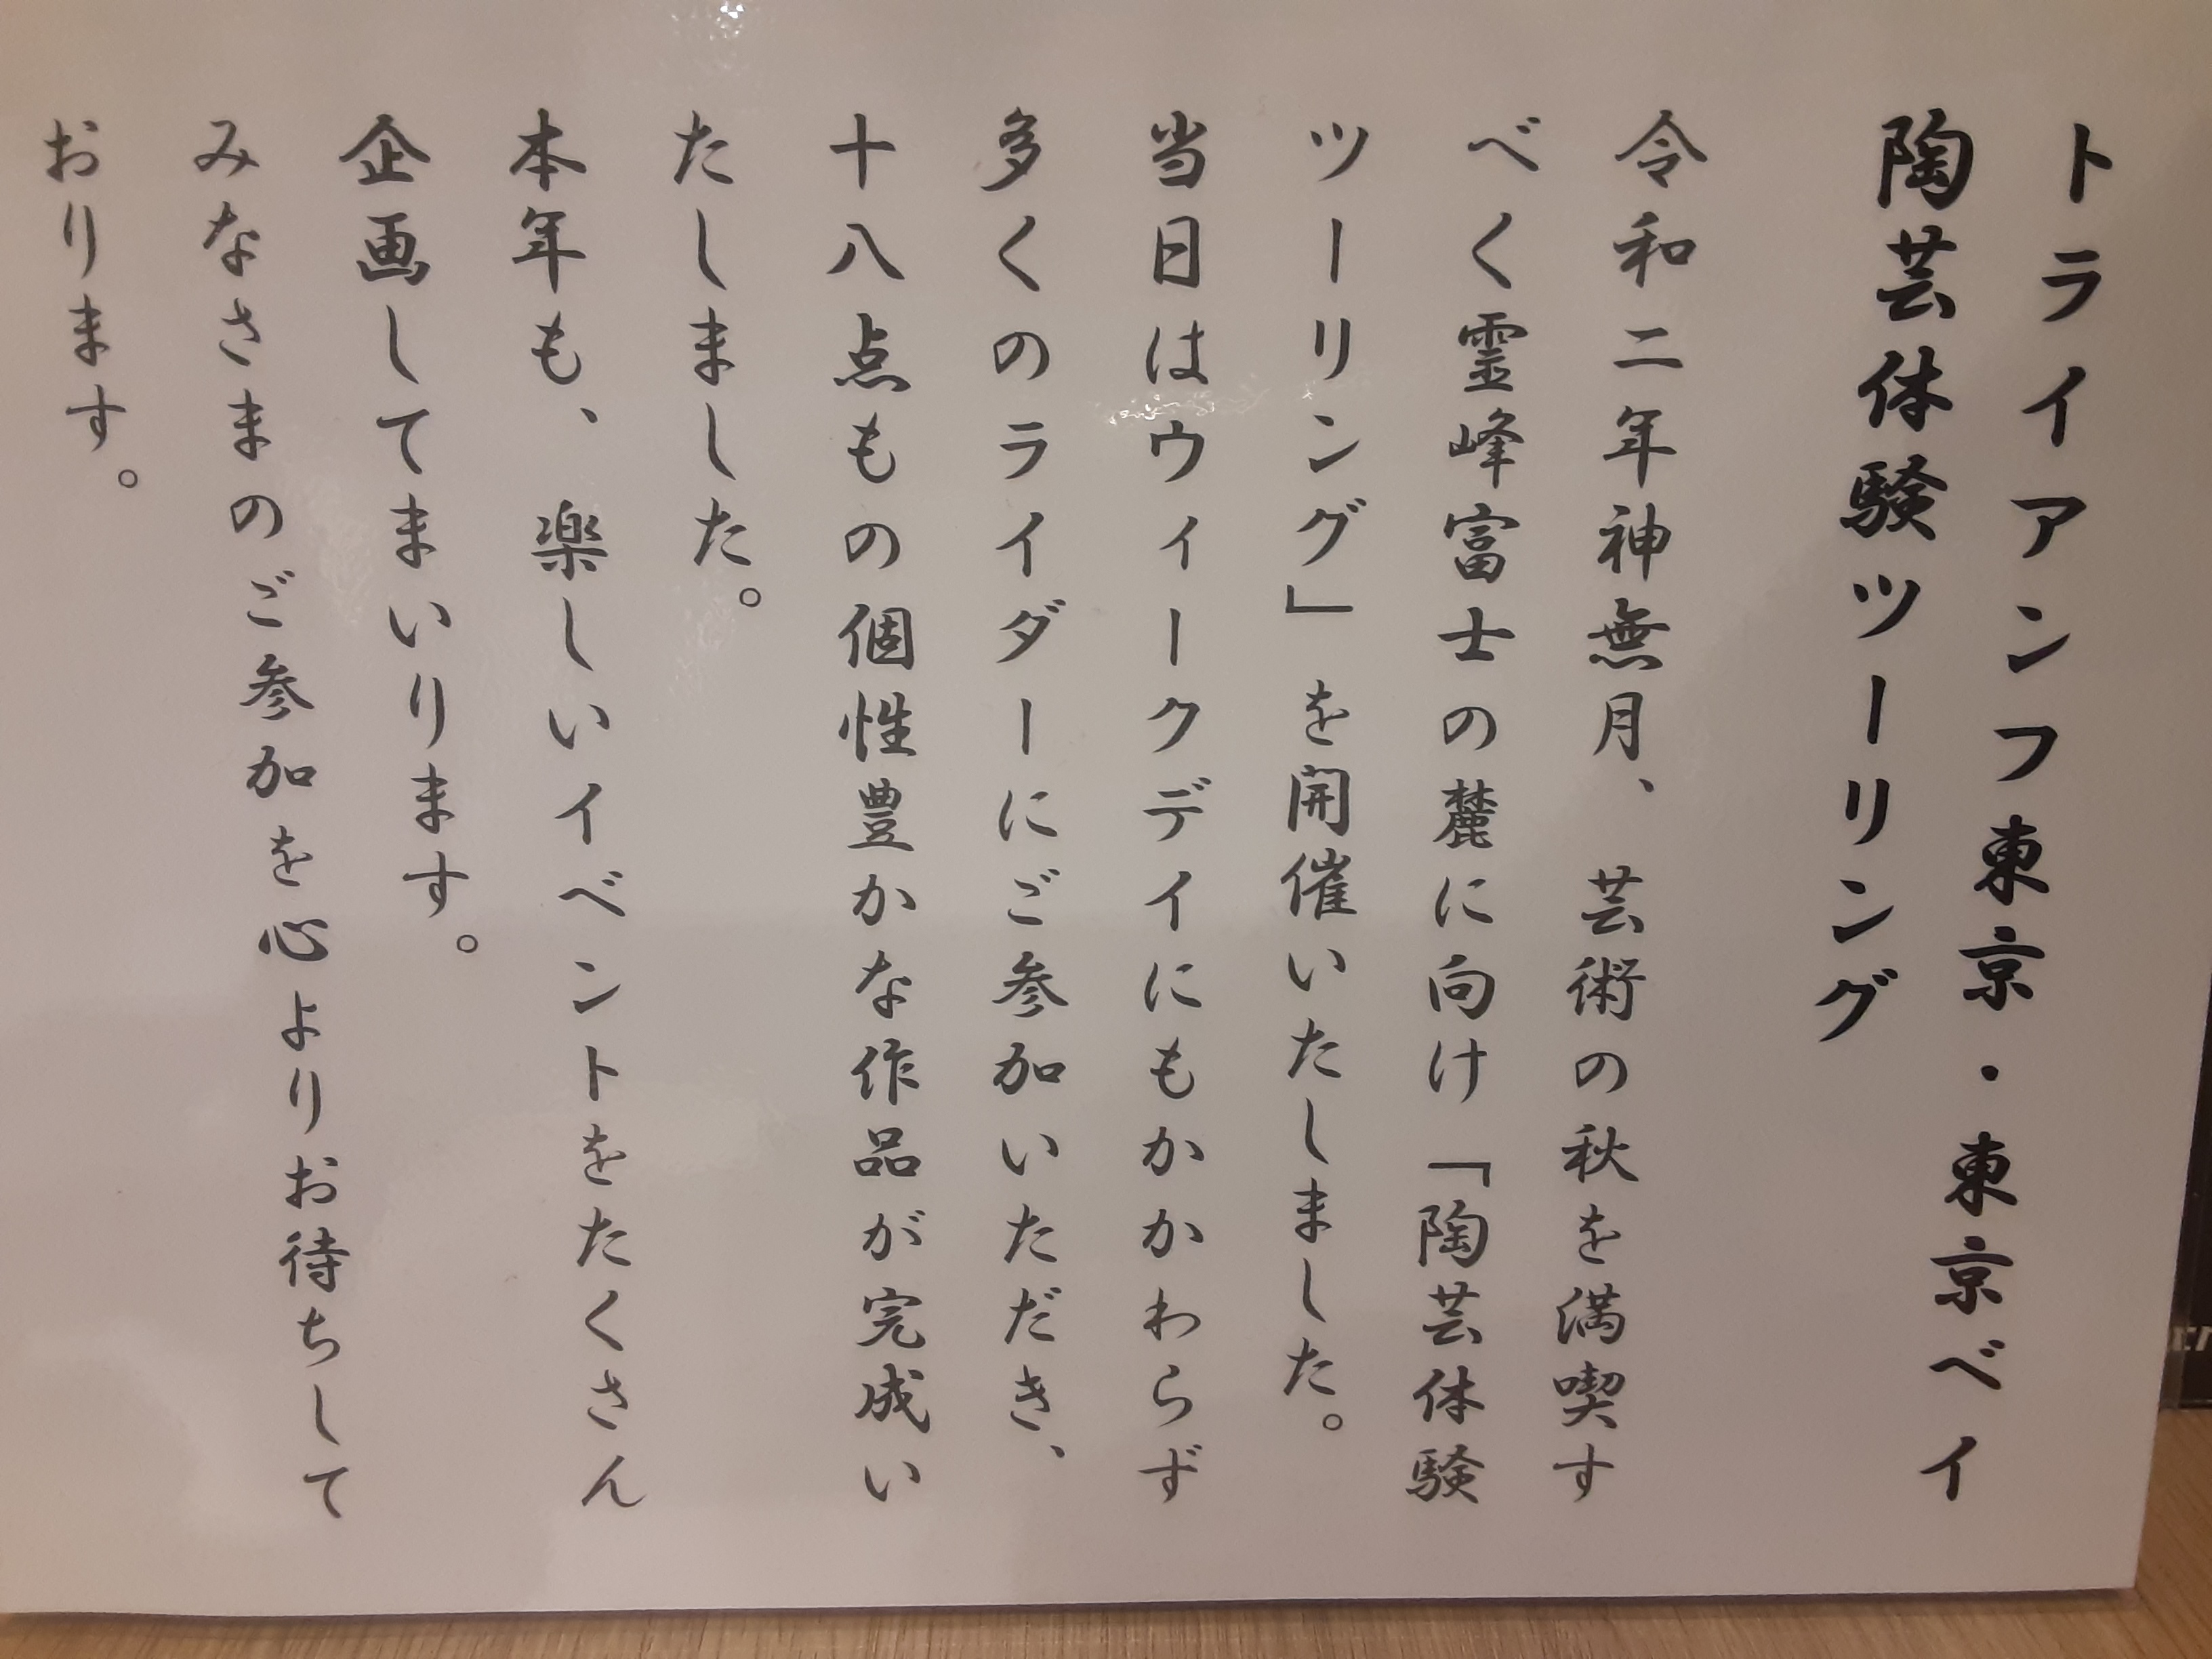 トライアンフ東京・東京ベイ
陶芸体験ツーリング
令和二年神無月、芸術の秋を満喫す
べく霊峰富士の麓に向け「陶芸体験
ツーリング」を開催いたしました。
当日はウィークデイにもかかわらず
多くのライダーにご参加いただき、
十八点もの個性豊かな作品が完成い
たしました。
本年も、楽しいイベントをたくさん
企画してまいります。
みなさまのご参加を心よりお待ちして
おります。